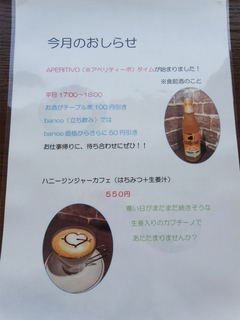 今月のおしらせ
APERITIVO(※アペリティーボ)タイムが始まりました!
※食前酒のこと
平日 17:00～18:00
お酒がテーブル席 100円引き
banco(立ち飲み)では
banco価格からさらに50円引き
お仕事帰りに、待ち合わせにぜひ!!
ハニージンジャーカフェ(はちみつ+生姜汁)
550円
寒い日がまだまだ続きそうな
生姜入りのカプチーノで
あたたまりませんか?